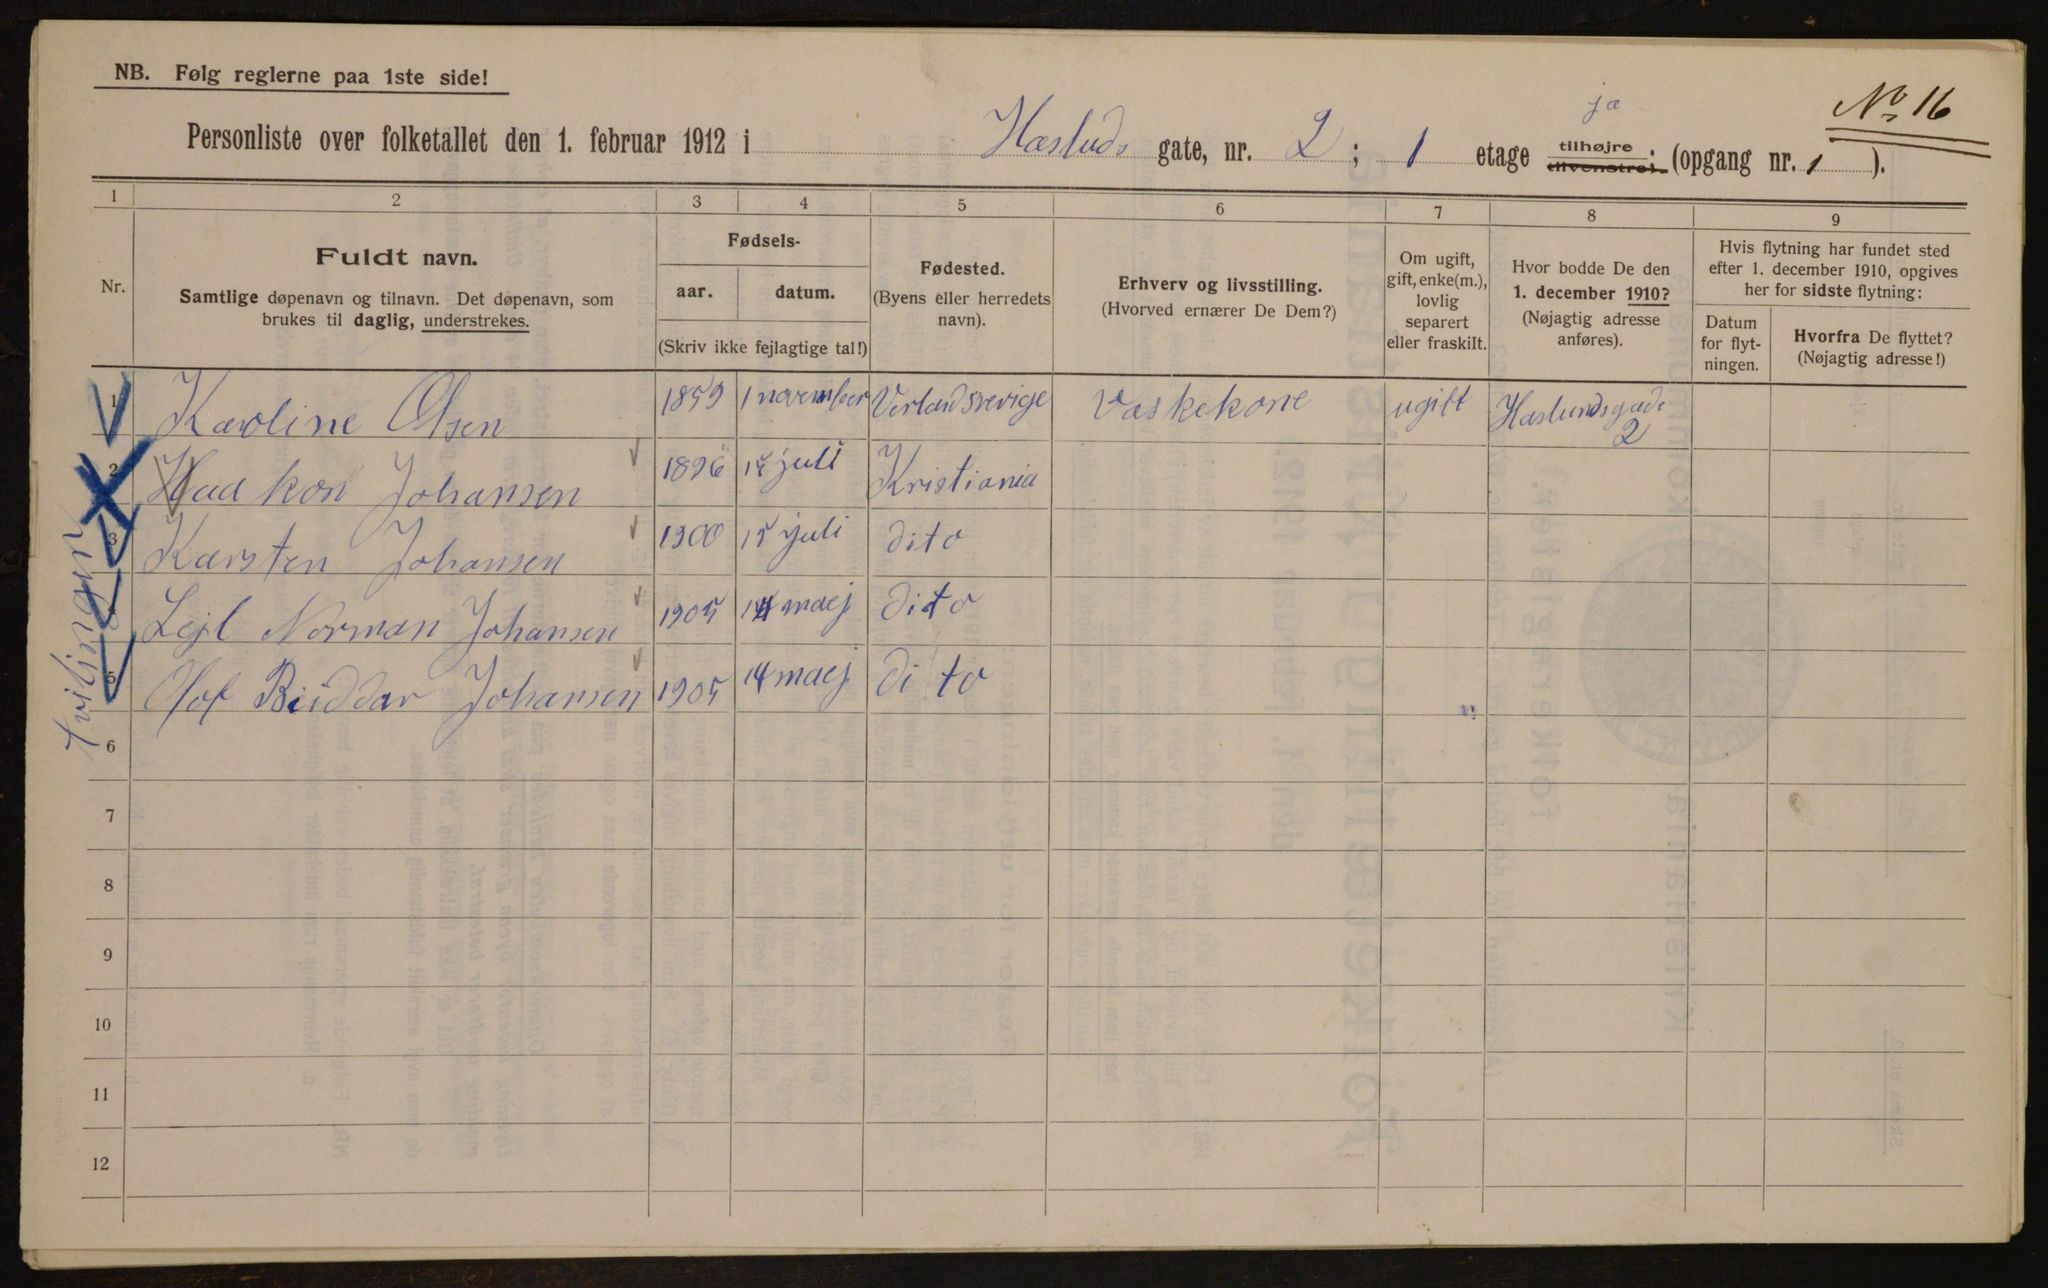 NB. Følg reglerne paa 1ste side!
ja
No 16
Personliste over folketallet den 1. februar 1912 i Hasluds gate, nr. 2; 1 etage tilhøjre tilvenstre; (opgang nr. 1).
1 2 3 4 5 6 7 8 9
Nr.
Fuldt navn.
Samtlige døpenavn og tilnavn. Det døpenavn, som
brukes til daglig, understrekes.
Fødsels-
aar. datum.
(Skriv ikke fejlagtige tal!)
Fødested.
(Byens eller herredets
navn).
Erhverv og livsstilling.
(Hvorved ernærer De Dem?)
Om ugift,
gift, enke(m.),
lovlig
separert
eller fraskilt.
Hvor bodde De den
1. december 1910?
(Nøjagtig adresse
anføres).
Hvis flytning har fundet sted
efter 1. december 1910, opgives
her for sidste flytning:
Datum
for flyt-
ningen.
Hvorfra De flyttet?
(Nøjagtig adresse!)
1 Karoline Olsen 1859 1 november Verland sverige Vaskekone ugift Haslundsgade
2
2 Haakon Johansen 1896 14 juli Kristiania
3 Karsten Johansen 1900 15 juli dito
4 Lejl Norman Johansen 1905 14 maej dito
5 Olof Buddar Johansen 1905 14 maej dito
tvilinger
6
7
8
9
10
11
12